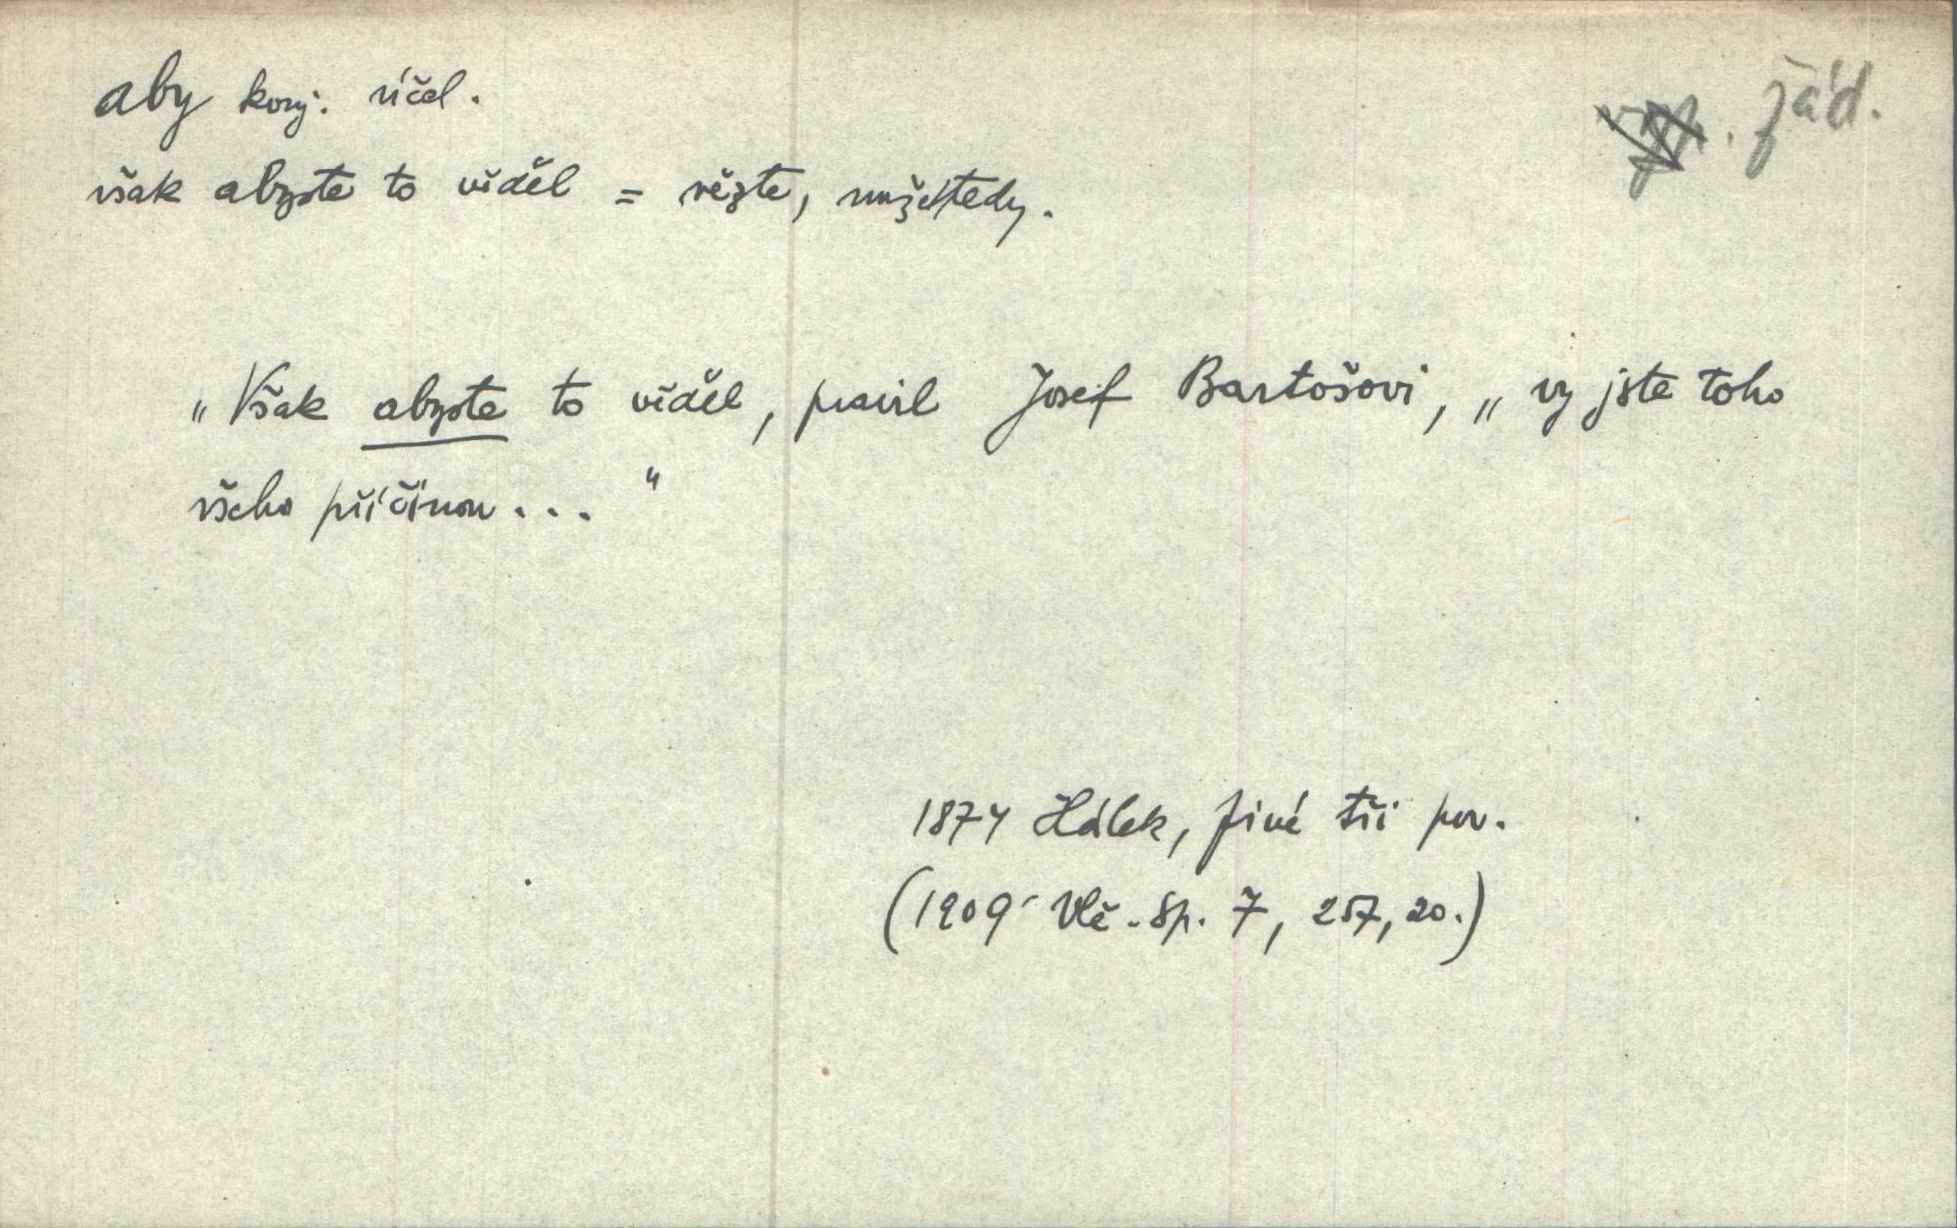 aby konj. účel.
žád.
však abyste to viděl = vězte, nuže tedy.
„Však abyste to viděl, pravil Josef Bartošovi, „vy jste toho
všeho příčinou ... "
1874 Hálek, Jiné tři pov.
(1909 Vlč. Sp. 7, 257, 20.)